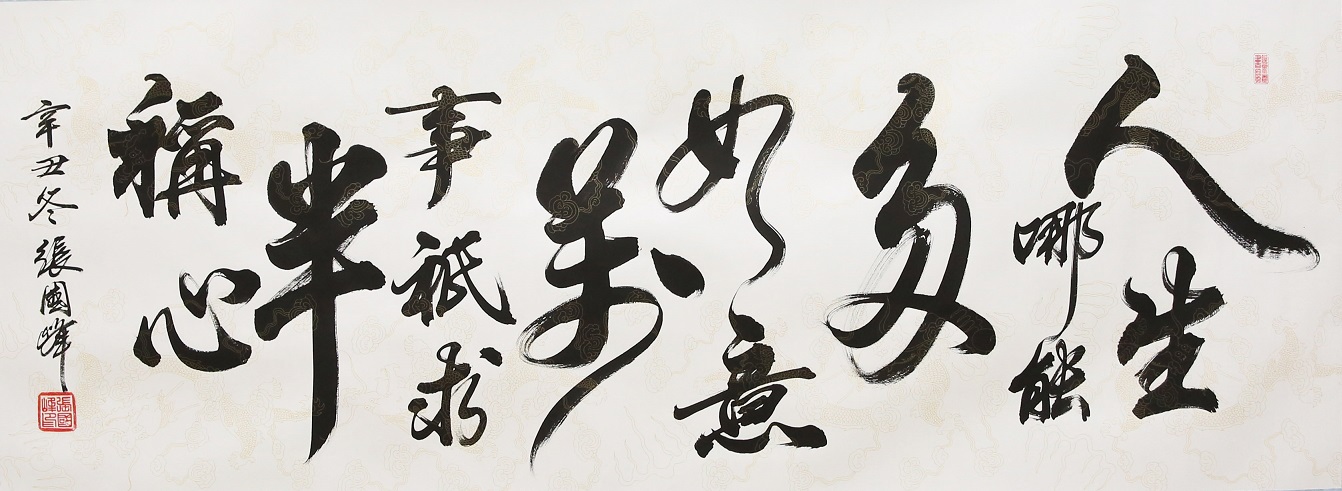 人生
哪能
多
如意
萬
事祇求
半
稱心
辛丑冬張國峰
張國峰印